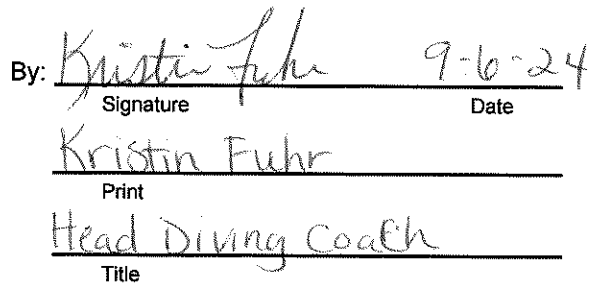 By: Kristin Fuhr 9-6-24
Signature Date
Kristin Fuhr
Print
Head Diving Coach
Title